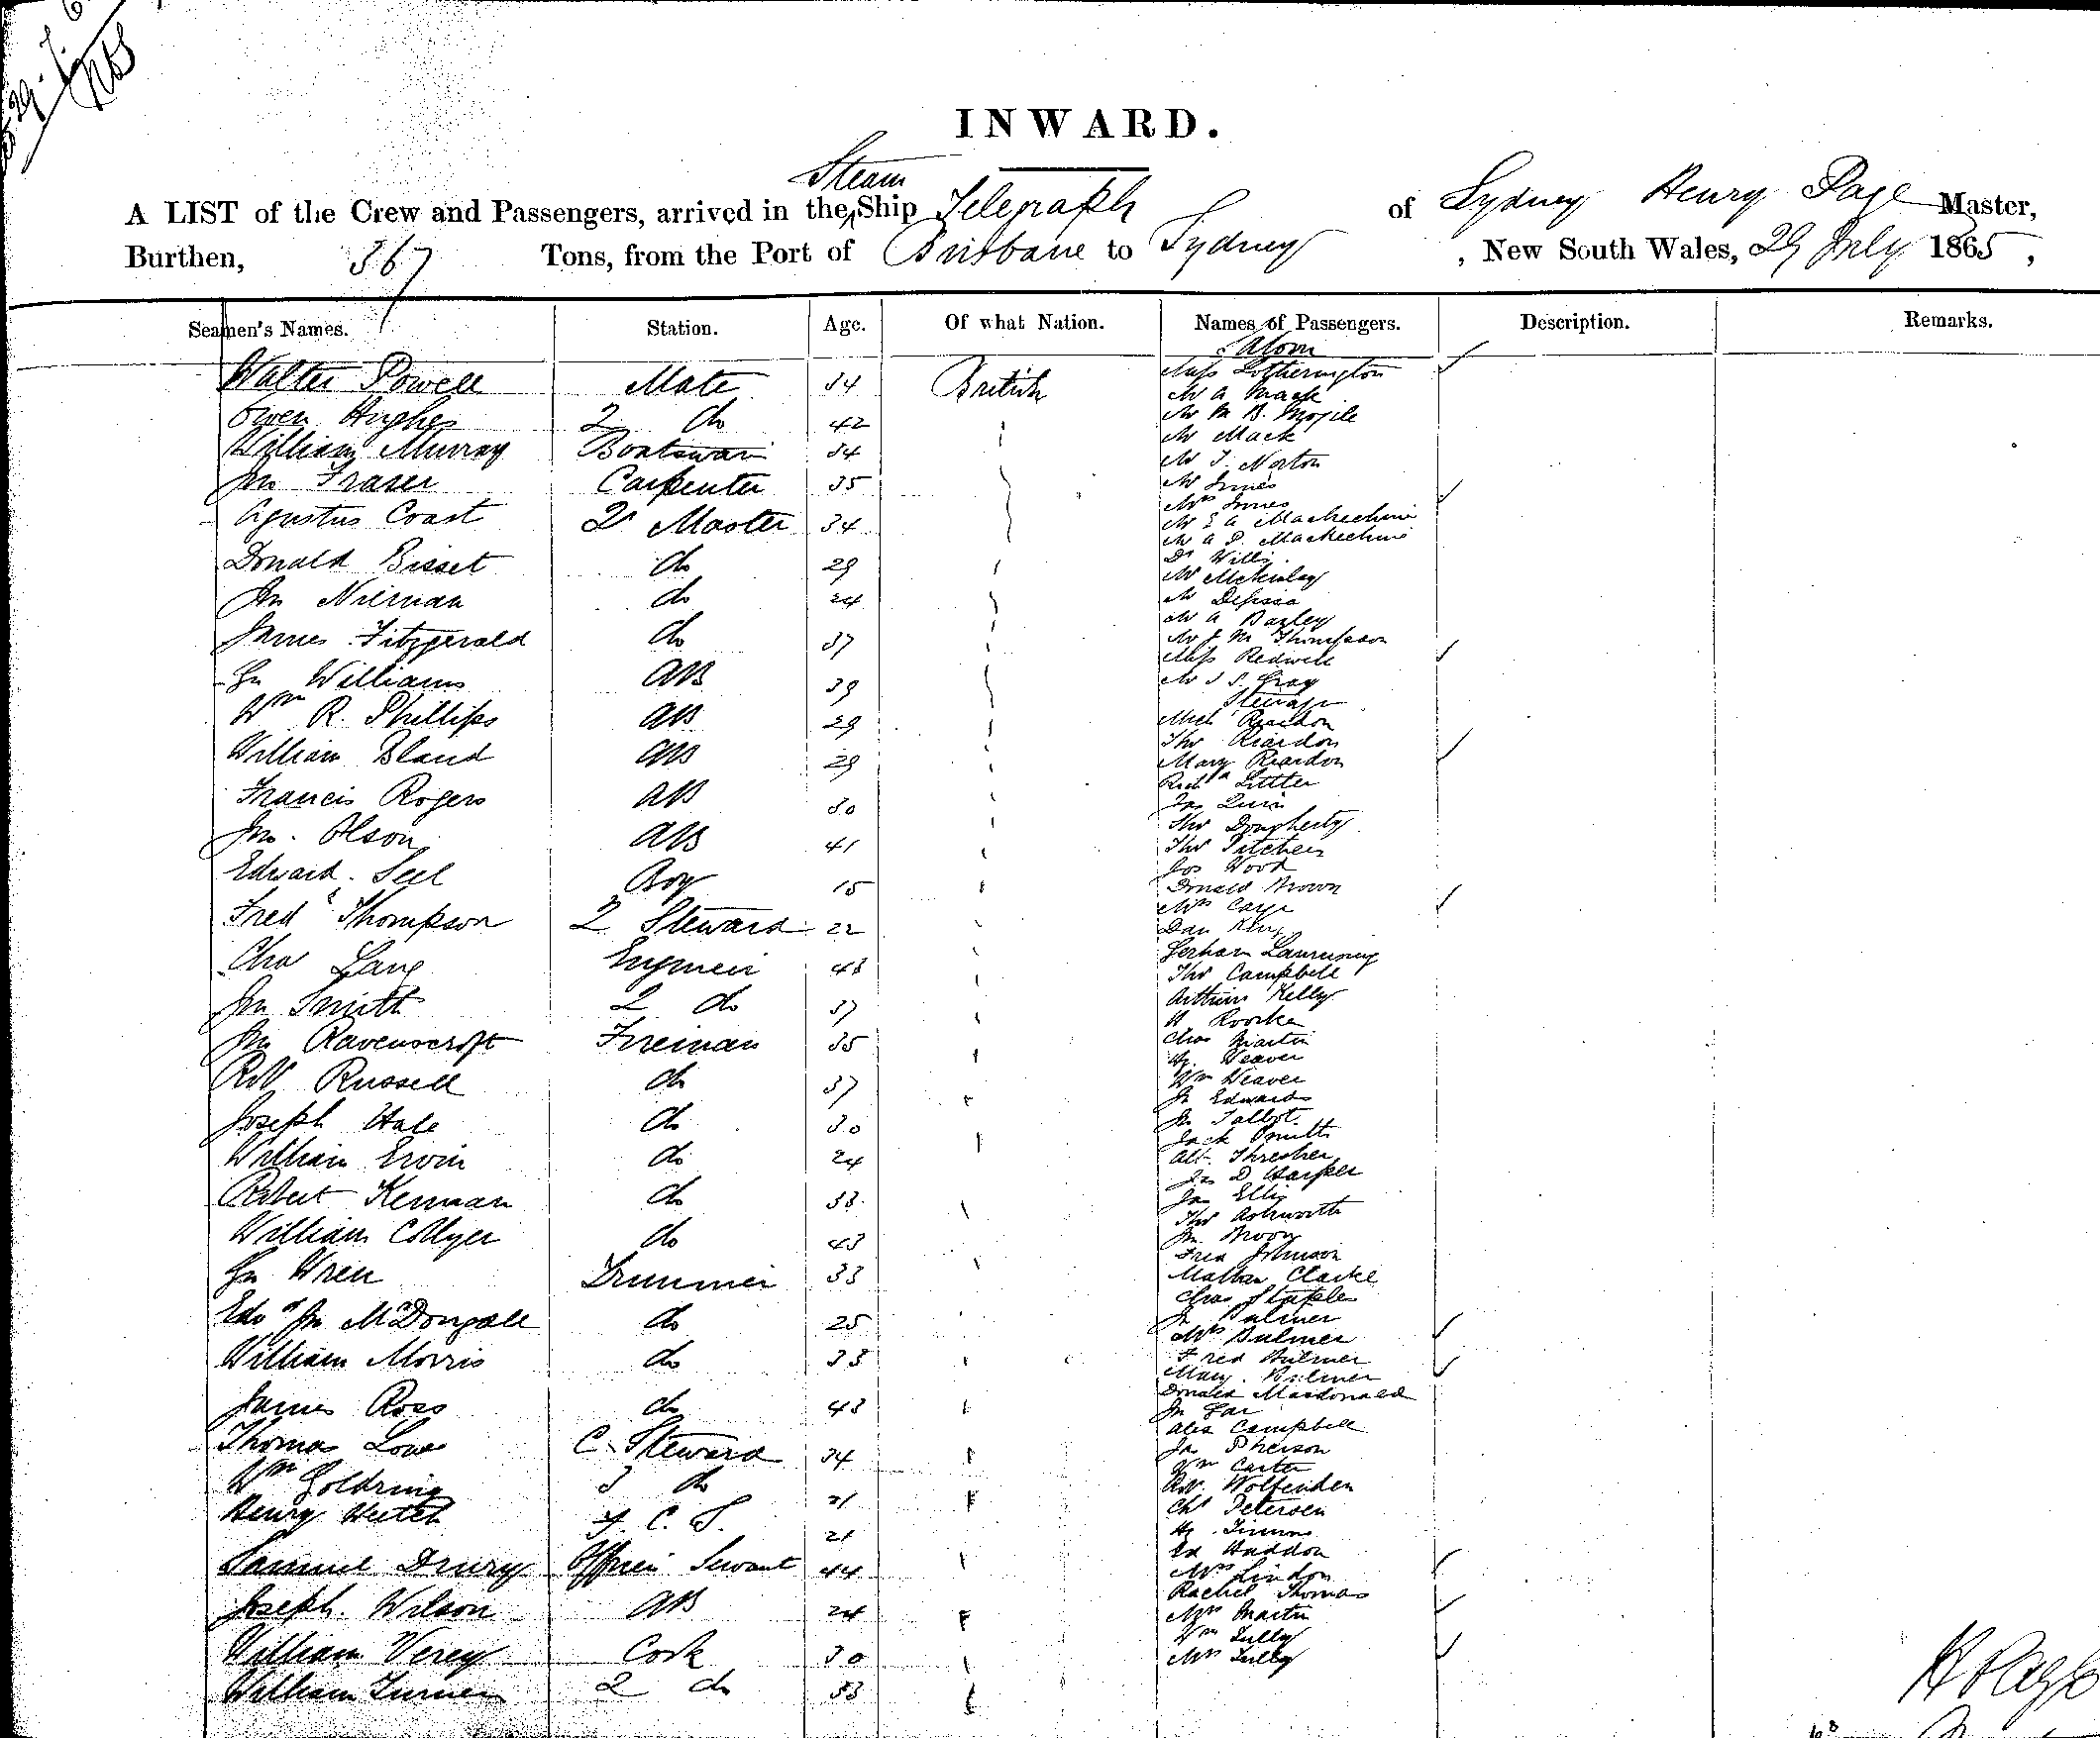 INWARD.
A LIST of the Crew and Passengers, arrived in the Steam Ship Telegraph of Sydney Henry Page Master,
Burthen, 367 Tons, from the Port of Brisbane to Sydney, New South Wales, 29 July 1865,
Seamen's Names. Station. Age. Of what Nation. Names of Passengers. Description. Remarks.
Walter Powell Mate 34 British
Owen Hughes 2 do 42
William Murray Boatswain 34
Jno Fraser Carpenter 35
Agustus Coast Qr Master 34
Donald Bisset do 29
Jno Niernan do 24
James Fitzgerald do 37
Williams AB 39
Wm R. Phillips AB 29
William Bland AB 29
Francis Rogers AB 30
Jno. Olson AB 41
Edward Seel Boy 15
Fred Thompson 2 Steward 22
Chas Lang Engineer 43
Jno Smith 2 do 37
Jno Ravenscroft Fireman 35
Robt Russell do 37
Joseph Hale do 30
William Ervin do 24
Robert Kernnan do 33
William Collyer do 43
Wren Trimmer 33
Edwd Jno McDougall do 25
William Morris do 33
James Ross do 43
Thomas Lowe C. Steward 34
Wm Goldring 3 do 21
Henry F. C. S. 21
Samuel Drury Officers Servant 44
Joseph Wilson AB 24
William Verey Cook 30
William Turner 2 do 53
Saloon
Miss Lotherington
Mr A Mack
Mr M B.
Mr Mack
Mr T. Norton
Mr Innes
Mrs Innes
Mr E A Mackechnie
Mr A P. Mackechnie
Dr Willis
Mr McKinlay
Mr Delissa
Mr A Bayley
Mr J M Thompson
Miss Redwell
Mr J P. Gray
Steerage
Mich Reardon
Thos Reardon
Mary Reardon
Richd Littler
Jas Quin
Thos Dougherty
Thos Pitcher
Jos Wood
Donald Brown
Mrs Carr
Dan King
Thos Campbell
Arthur Kelly
Roorke
Chas Martin
Hy. Weaver
Wm Weaver
Jno Edwards
Jno Talbot
Jack Smith
Alf. Thresher
Jas D Harper
Jas Ellis
Thos Ashworth
Jno Moon
Fred Johnson
Clarke
Chas Staples
Jno Bulmer
Mrs Bulmer
Fred Bulmer
Mary Bulmer
Donald Macdonald
Jno
Alex Campbell
Jas Pherson
Wm Carter
Robt. Wolfenden
Chs Petersen
Hy. Timms
Ed Haddon
Mrs Lindon
Rachel Thomas
Mrs Martin
Wm Tully
Mrs Tully
H Page